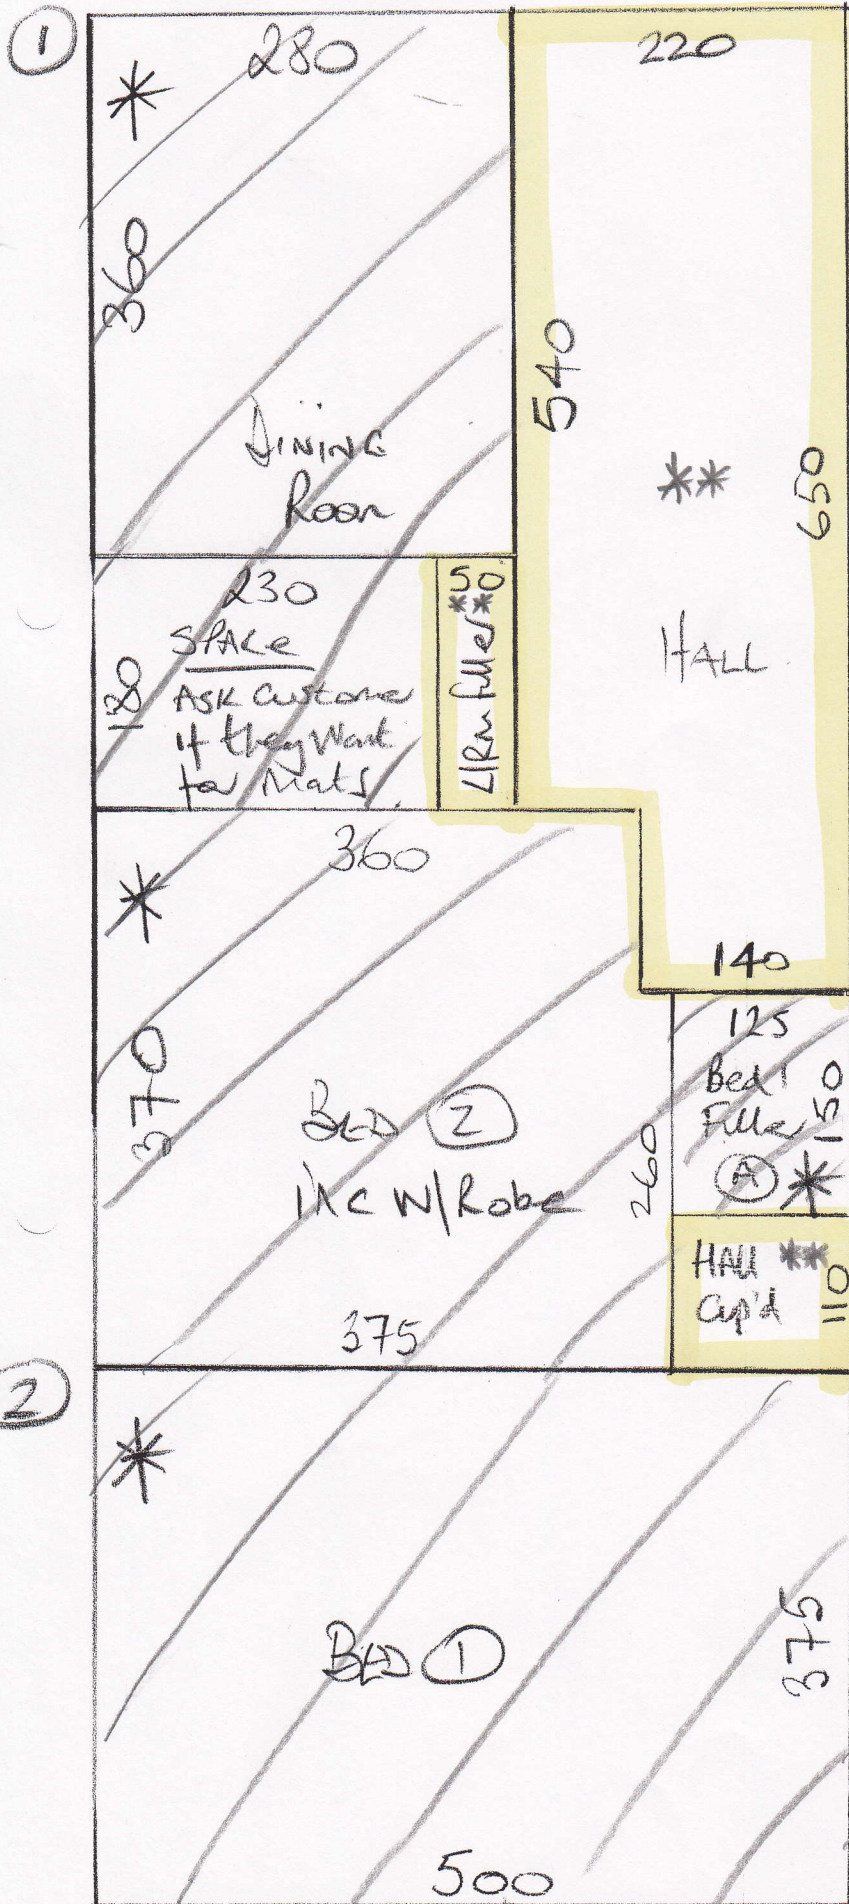 1
280
220
360
DINING
Room
540
**
650
HALL
230
SPACE
ASK Customer
if they Want
for Mats
180
50
**
L/Rm filler
360
370
BED 2
INC W/Robe
375
260
140
125
Bed 1
Filler
A
150
HALL **
Cup'd
110
2
BED 1
375
500